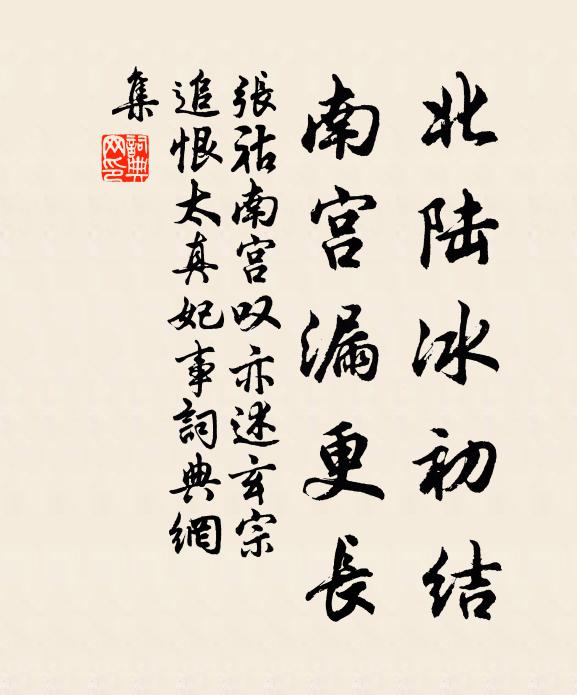 北陆冰初结
南宫漏更长
張祜南宫叹亦述玄宗
追恨太真妃事詞典網
集
詞典网印